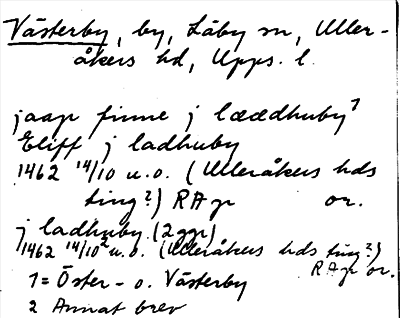 Västerby, by, Läby sn, Uller-
åkers hd, Upps. l.
jaap finne j lææddhuby¹
Eliff j ladhuby
1462 14/10 u.o. (Ulleråkers hds
ting?) RAp or.
j ladhuby (2 ggr)
1462 14/10² u.o. (Ulleråkers hds ting?)
RAp or.
1 = Öster- o. Västerby
2 Annat brev